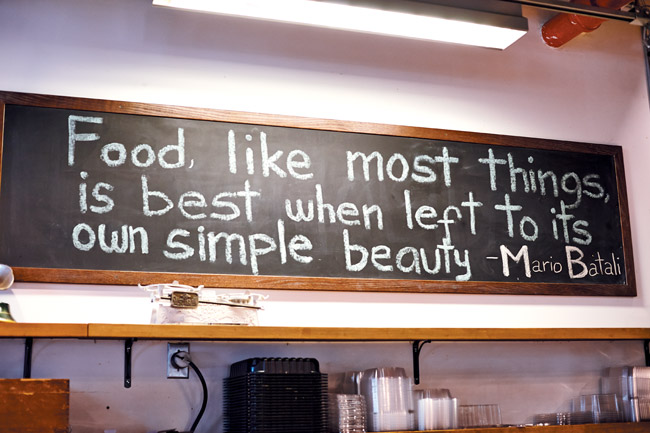 Food, like most things,
is best when left to its
own simple beauty -Mario Batali